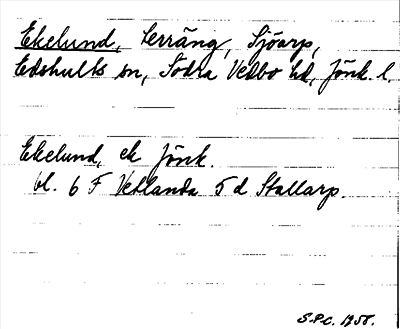 Ekelund, terräng, Sjöarp,
Edshults sn, Södra Vedbo hd, Jönk. l.
Ekelund, ek Jönk.
bl. 6 F Vetlanda 5 d Stallarp.
S.P.C. 1958.